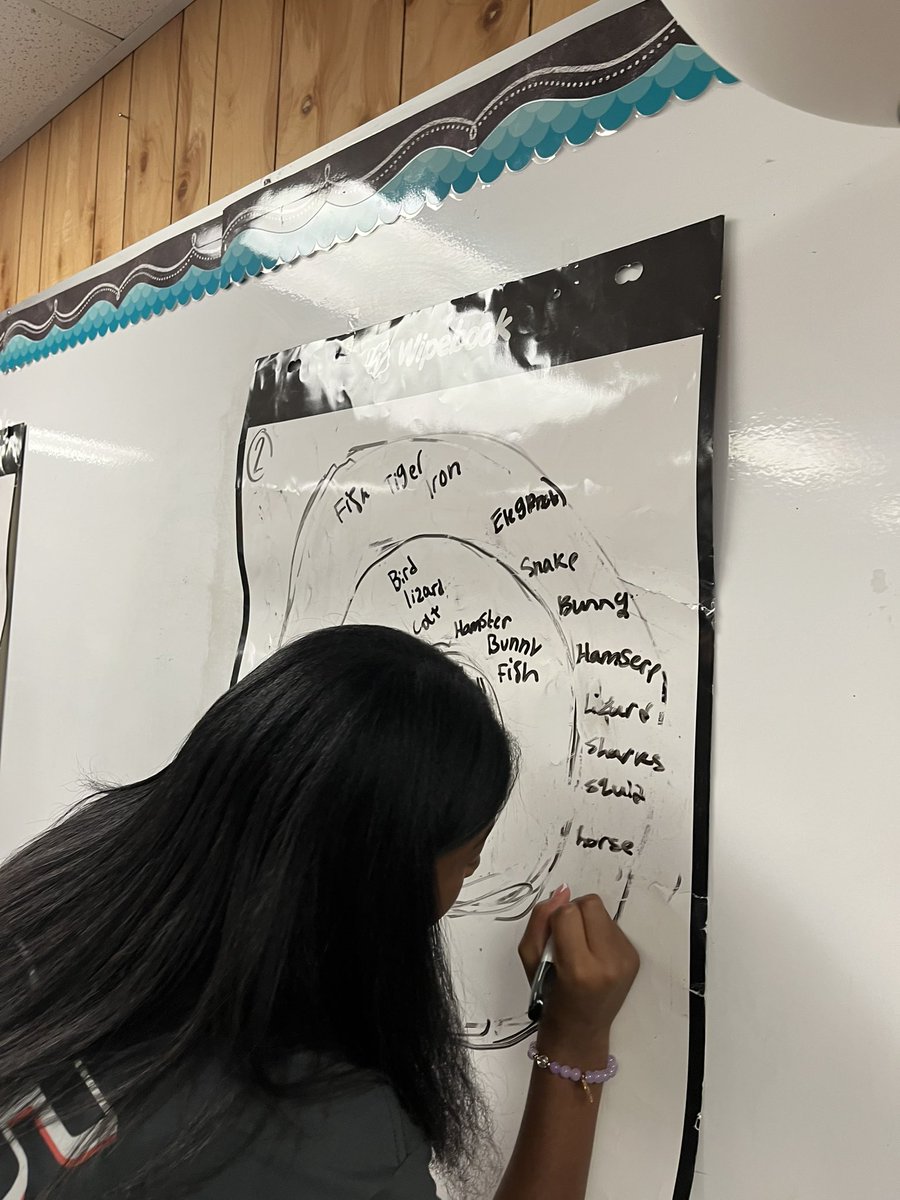 Wipebook
2
Fish Tiger
lron
Snake
Bunny
Hamserr
Lizard
Sharks
squid
horse
Bird
lizard
Hamster
Bunny
Fish